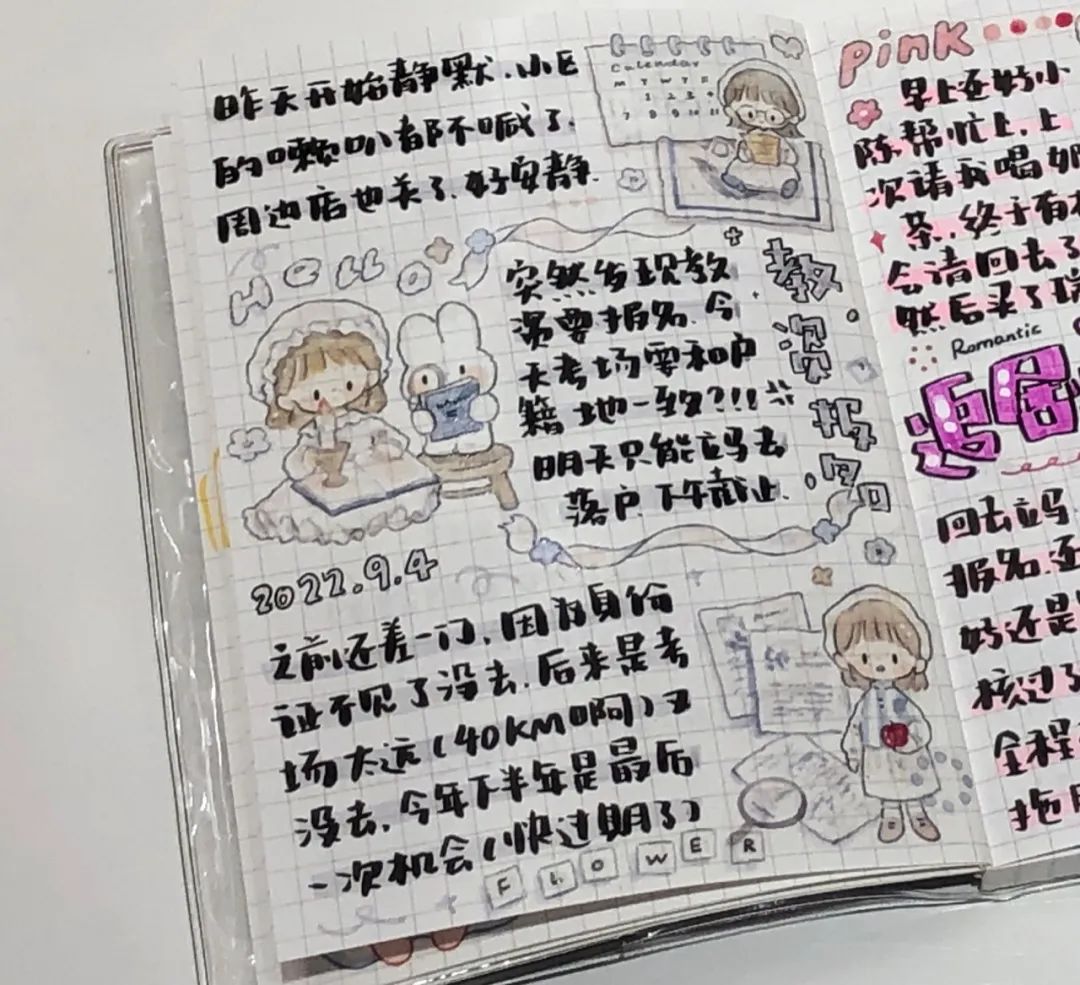 昨天开始静默.小区
的喇叭都不喊了.
周边店也关了.好安静.
Calendar
M T W T F
1 2 3 4
7 8 9 10 11
HELLO
突然发现教
资要报名.今
天考场要和户
籍地一致?!!
明天只能立马去
落户.下午截止.
教资报名
2022.9.4
之前还差一门.因为身份
证不见了没去.后来是考
场太远(40KM啊)又
没去.今年下半年是最后
一次机会(快过期了)
FLOWER
pink
早上还好小
陈帮忙上.上
次请我喝奶
茶.终于有机
会请回去了
然后买了瑞
Romantic
返居
回去立马
报名.还
好还是
核过了
全程
拖